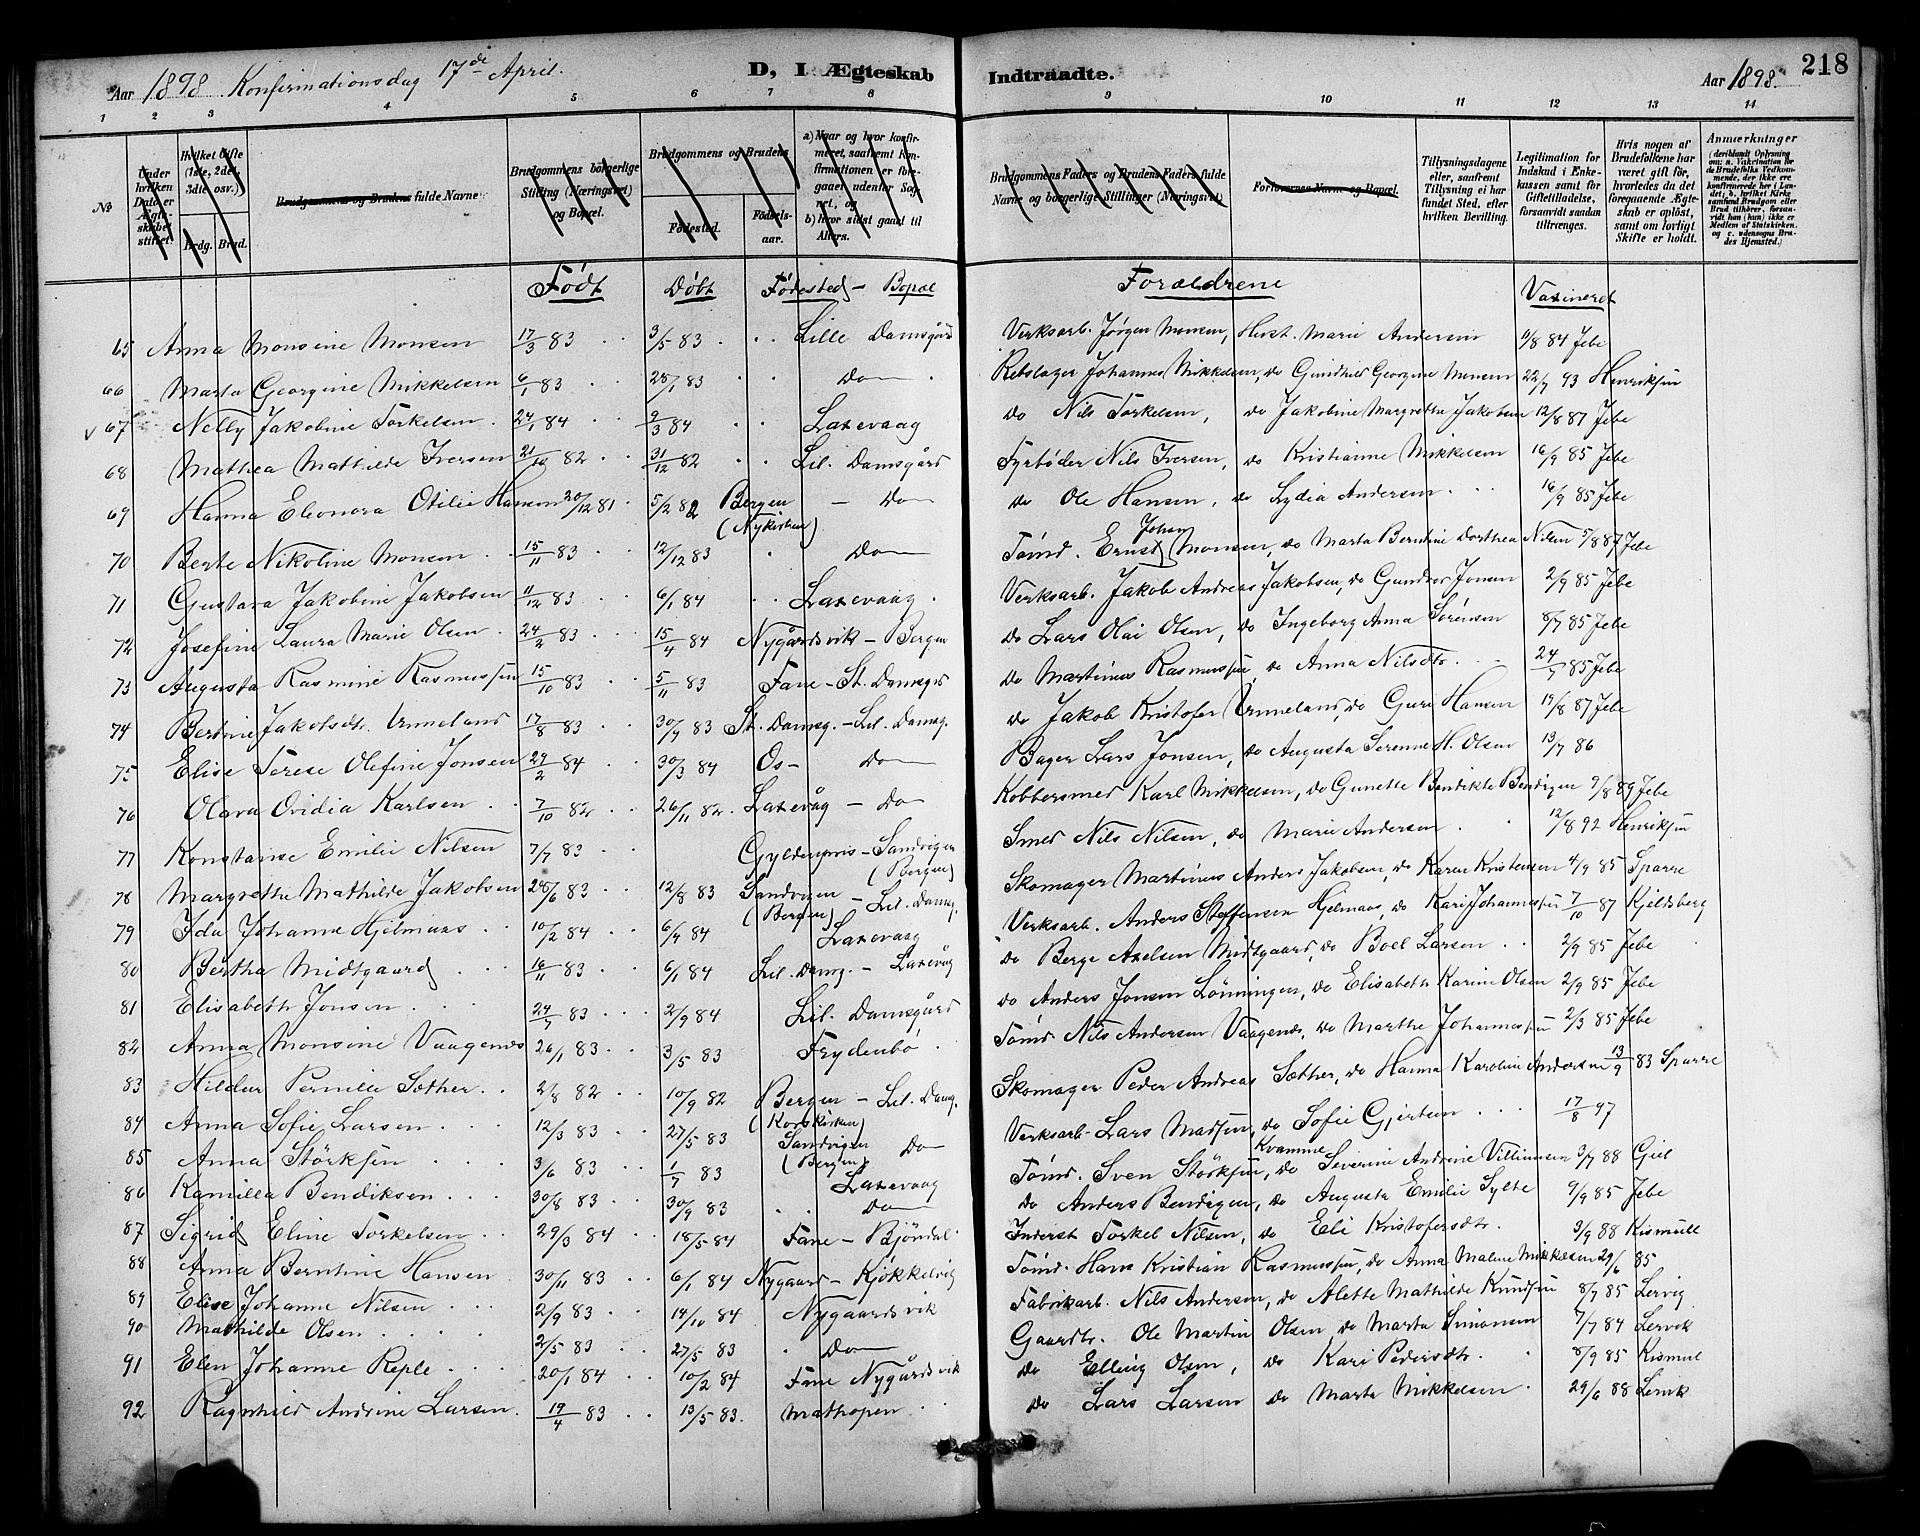 Aar 1898 Konfirmationsdag 17de April. D, I Ægteskab Indtraadte. Aar 1898. 218
1 2 3 4 5 6 7 8 9 10 11 12 13 14
No
Under hvilken Dato er Ægteskabet stiftet.
Hvilket Gifte (1ste, 2det, 3die osv.)
Brdg. Brud.
Brudgommens og Brudens fulde Navne
Brudgommens borgerlige Stilling (Næringsvei) og Bopæl.
Brudgommens og Brudens
Fødested. Fødselsaar.
a) Naar og hvor konfirmeret, saafremt Konfirmationen er foregaaet udenfor Sognet, og b) hvor sidst gaaet til Alters.
Brudgommens Faders og Brudens Faders fulde Navne og borgerlige Stillinger (Næringsvei)
Forlovernes Navne og Bopæl.
Tillysningsdagene eller, saafremt Tillysning ei har fundet Sted, efter hvilken Bevilling.
Legitimation for Indskud i Enkekassen samt for Giftetilladelse, forsaavidt saadan tiltrænges.
Hvis nogen af Brudefolkene har været gift før, hvorledes da det foregaaende Ægteskab er opløst, samt om lovligt Skifte er holdt.
Anmærkninger (deriblandt Oplysning om: a. Vakcination for de Brudefolks Vedkommende, der ikke ere konfirmerede her i Landet; b. hvilket Kirkesamfund Brudgom eller Brud tilhører, forsaavidt han (hun) ikke er Medlem af Statskirken, og c. udensogns Brudes Hjemsted.)
Født Døbt Fødested - Bopæl Forældrene Vaxineret
65 Anna Monsine Monsen 17/3 83 3/5 83 Lille Damsgård Verksarb. Jørgen Monsen, Hust. Marie Andersen 11/8 84 Jebe
66 Marta Georgine Mikkelsen 6/1 83 28/1 83 Do Rebslager Johannes Mikkelsen, do Gundhild Georgine Monsen 22/7 93 Henriksen
67 Nelly Jakobine Torkelsen 24/1 84 9/3 84 Laxevaag do Nils Torkelsen, do Jakobine Margrethe Jakobsen 12/8 87 Jebe
68 Mathea Mathilde Iversen 21/10 82 31/12 82 Lil. Damsgård Fyrbøder Nils Iversen, do Kristianne Mikkelsen 16/9 85 Jebe
69 Hanna Eleonora Otilie Hansen 20/12 81 5/2 82 Bergen (Nykirken) - Do do Ole Hansen, do Lydia Andersen 16/9 85 Jebe
70 Berte Nikoline Monsen 15/11 83 12/12 83 Do Tømd. Ernst Johan Monsen, do Marta Berntine Dorthea Nilsen 5/8 87 Jebe
71 Gustava Jakobine Jakobsen 11/12 83 6/1 84 Laxevaag Verksarb. Jakob Andreas Jakobsen, do Gundvor Jonsen 2/9 85 Jebe
72 Josefine Laura Marie Olsen 24/2 83 15/4 84 Nygårdsvik - Bergen do Lars Olai Olsen, do Ingeborg Anna Sørensen 8/7 85 Jebe
73 Augusta Rasmine Rasmussen 15/10 83 5/11 83 Fane - St. Damsgrd do Martinus Rasmussen, do Anna Nilsdtr. 24/7 85 Jebe
74 Bertine Jakobsdtr. Unneland 17/8 83 30/9 83 St. Damsg. - Lil. Damsg. do Jakob Kristofer Unneland, do Guri Hansen 19/8 87 Jebe
75 Elise Terese Olefine Jonsen 29/2 84 30/3 84 Os - Do Bager Lars Jonsen, do Augusta Serenne H. Olsen 13/7 86
76 Olava Ovidia Karlsen 7/10 82 26/11 82 Laxevåg - Do Kobbersmed Karl Mikkelsen, do Gunette Bendikte Bendixen 9/8 89 Jebe
77 Konstanse Emilie Nilsen 7/7 83 Gyldenpris - Sandvigen (Bergen) Smed Nils Nilsen, do Marie Andersen 12/8 92 Henriksen
78 Margrethe Mathilde Jakobsen 28/6 83 12/8 83 Sandvigen (Bergen) - Lil. Damsg. Skomager Martinus Anders Jakobsen, do Karen Kristensen 4/9 85 Sparre
79 Ida Johanne Hjelmaas 10/2 84 6/4 84 Laxevaag Verksarb. Anders Steffensen Hjelmaas, do Kari Johannessen 7/10 87 Kjeldsberg
80 Bertha Midtgaard 16/11 83 6/1 84 Lil. Damsg. - Laxevåg do Berge Axelsen Midtgaard, do Boel Larsen 2/9 85 Jebe
81 Elisabeth Jonsen 24/7 83 2/9 84 Lil. Damsgård do Anders Jonsen Lønningen, do Elisabeth Karine Olsen 2/9 85 Jebe
82 Anna Monsine Vaagenes 26/1 83 3/5 83 Frydenbø Tømd Nils Andersen Vaagenes, do Marthe Johannessen 2/3 85 Jebe
83 Hildur Pernille Sæther 2/8 82 10/9 82 Bergen (Korskirken) - Lil. Damsg. Skomager Peder Andreas Sæther, do Hanna Karoline Andersen 13/9 83 Sparre
84 Anna Sofie Larsen 12/3 83 27/5 83 Sandvigen (Bergen) Do Verksarb. Lars Madsen, do Sofie Gjertsen 17/8 97
85 Anna Størksen 3/6 83 1/7 83 Laxevaag Tømd. Sven Størksen Kvamme, do Severine Andrine Villumsen 3/7 88 Giel
86 Kamilla Bendiksen 30/8 83 30/9 83 Do do Anders Bendixen, do Augusta Emilie Sylte 9/9 85 Jebe
87 Sigrid Eline Torkelsen 29/3 84 18/5 84 Fane - Bjöndal Inderst Torkel Nilsen, do Eli Kristofersdtr. 9/9 88 Kismull
88 Anna Berntine Hansen 30/11 83 6/1 84 Nygaard - Kjøkkelvig Tømd. Hans Kristian Rasmussen, do Anna Malene Mikkelsen 29/6 85
89 Elise Johanne Nilsen 2/9 83 14/10 84 Nygaardsvik Fabrikarb. Nils Andersen, do Alette Mathilde Knudsen 8/7 85 Lervig
90 Mathilde Olsen 2/5 83 27/5 83 Do Gaardbr. Ole Martin Olsen do Marta Simonsen 7/7 84 Lervik
91 Elen Johanne Reple 20/1 84 10/2 84 Fane Nygårdsvik do Elling Olsen, do Kari Pedersdtr. 8/9 85 Kismul
92 Ragnhild Andrine Larsen 19/4 83 13/5 83. Mathopen do Lars Larsen do Marta Mikkelsen 29/6 88 Lervik